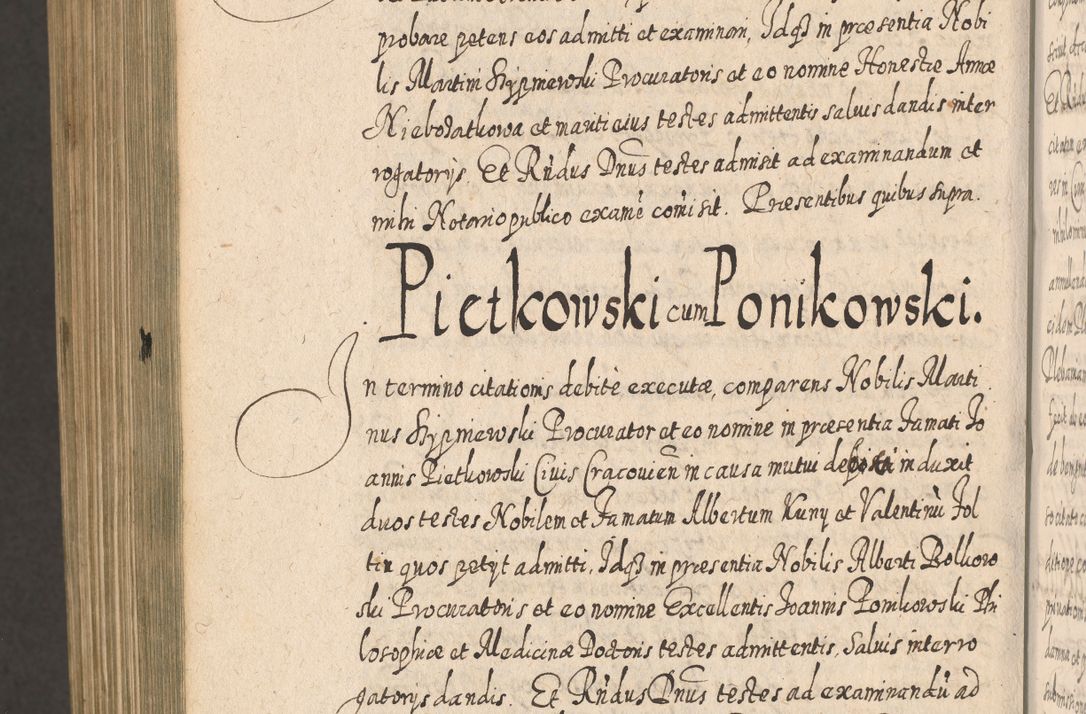 probare petens eos admitti et examinari, Idqꝫ in præsentia Nobi
lis Martini Szypniewski Procuratoris et eo nomine Honestæ Annæ
Niebozatkowa et mariti eius testes admittentis salvis dandis inter
rogatorijs. Et Rńdus Dnus testes admisit ad examinandum et
mihi Notario publico examē comisit. Præsentibus quibus supra.
Pietkowski cum Ponikowski.
In termino citationis debitè executæ, comparens Nobilis Marti
nus Szypniewski Procurator et eo nomine in præsentia Famati Jo
annis Pietkowski Civis Cracovień in causa mutui induxit
duos testes Nobilem et Famatum Albertum Kuny et Valentinū Fol
tin quos petyt admitti, Idqꝫ in præsentia Nobilis Alberti Bolkow
ski Procuratoris et eo nomine Excellentis Joannis Ponikowski Phi
losophiæ et Medicinæ Doctoris testes admittentis, Salvis interro
gatorijs dandis. Et Rńdus Dnus testes ad examinandū ad